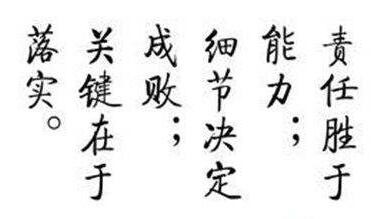 责任胜于
能力；
细节决定
成败；
关键在于
落实。